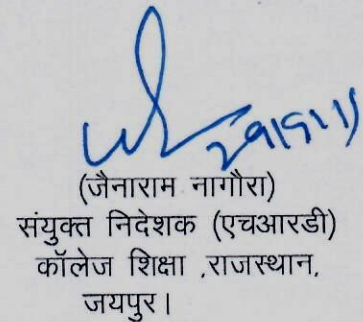 (जैनाराम नागौरा)
संयुक्त निदेशक (एचआरडी)
कॉलेज शिक्षा ,राजस्थान,
जयपुर।